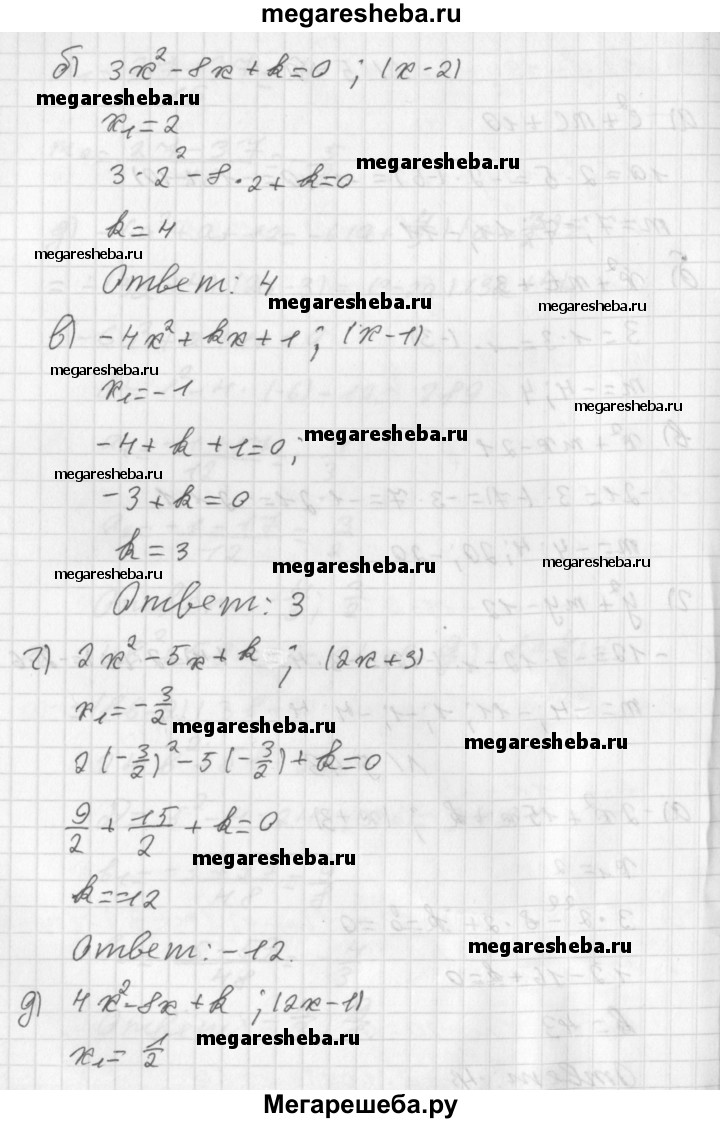 megaresheba.ru
б) 3x² - 8x + k = 0 ; (x - 2)
megaresheba.ru
x₁ = 2
megaresheba.ru
3 · 2² - 8 · 2 + k = 0
k = 4
megaresheba.ru
Ответ: 4
megaresheba.ru
megaresheba.ru
в) -4x² + kx + 1 ; (x - 1)
megaresheba.ru
x₁ = -1
megaresheba.ru
-4 + k + 1 = 0;
megaresheba.ru
megaresheba.ru
-3 + k = 0
k = 3
megaresheba.ru
megaresheba.ru
megaresheba.ru
Ответ: 3
г) 2x² - 5x + k ; (2x + 3)
x₁ = -3/2
megaresheba.ru
megaresheba.ru
2(-3/2)² - 5(-3/2) + k = 0
9/2 + 15/2 + k = 0
megaresheba.ru
k = -12
Ответ: -12.
megaresheba.ru
д) 4x² - 8x + k ; (2x - 1)
megaresheba.ru
x₁ = 1/2
Мегарешеба.ру